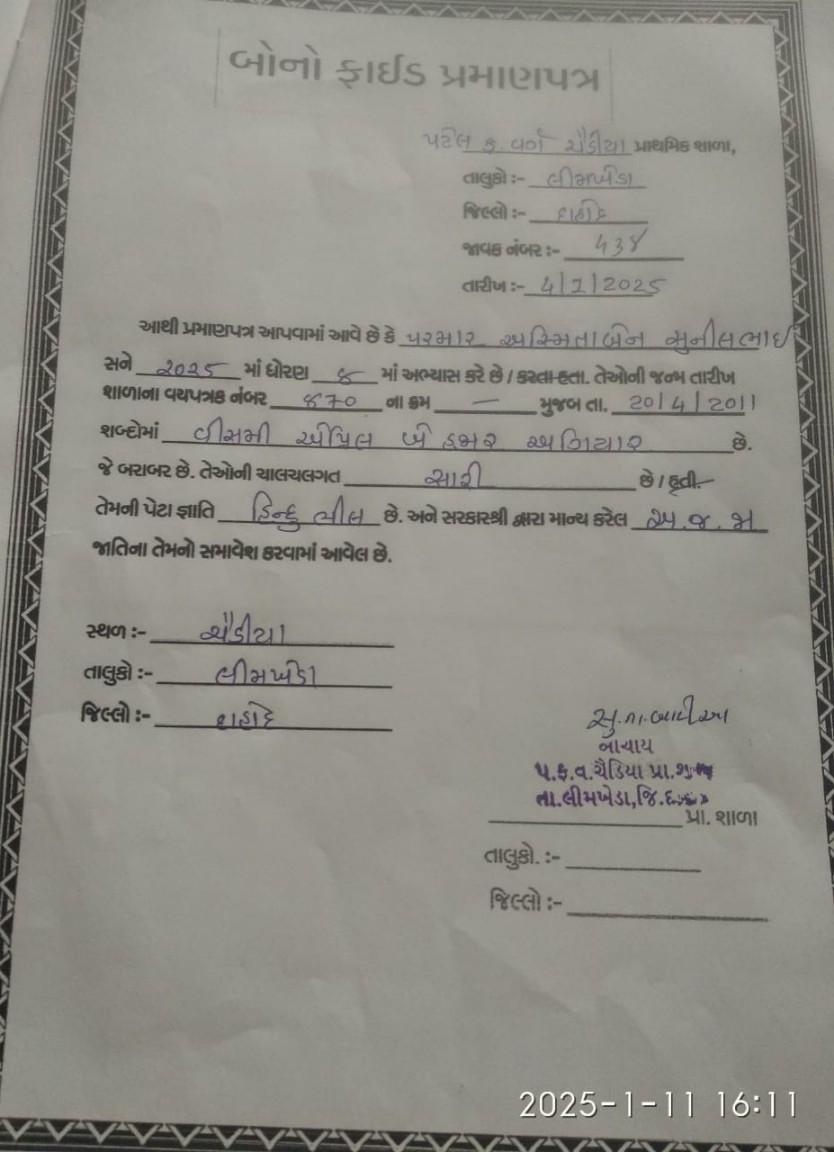 બોનો ફાઈડ પ્રમાણપત્ર
પટેલ ફ. વર્ગ ચૈડીયા પ્રાથમિક શાળા,
તાલુકો :- લીમખેડા
જિલ્લો :- દાહોદ
જાવક નંબર :- 438
તારીખ :- 4/1/2025
આથી પ્રમાણપત્ર આપવામાં આવે છે કે પરમાર અસ્મિતાબેન સુનીલભાઈ
સને ૨૦૨૫ માં ધોરણ ૪ માં અભ્યાસ કરે છે / કરતા હતા. તેઓની જન્મ તારીખ
શાળાના વયપત્રક નંબર ૪૭૦ ના ક્રમ — મુજબ તા. 20/4/2011
શબ્દોમાં વીસમી એપ્રિલ બે હજાર અગિયાર છે.
જે બરાબર છે. તેઓની ચાલચલગત સારી છે / હતી.
તેમની પેટા જ્ઞાતિ હિન્દુ ભીલ છે. અને સરકારશ્રી દ્વારા માન્ય કરેલ અ.જ.જા
જાતિના તેમનો સમાવેશ કરવામાં આવેલ છે.
સ્થળ :- ચૈડીયા
તાલુકો :- લીમખેડા
જિલ્લો :- દાહોદ
પ.ફ.વ.ચૈડિયા પ્રા.
તા.લીમખેડા,જિ.
પ્રા. શાળા
તાલુકો. :-
જિલ્લો :-
2025-1-11 16:11